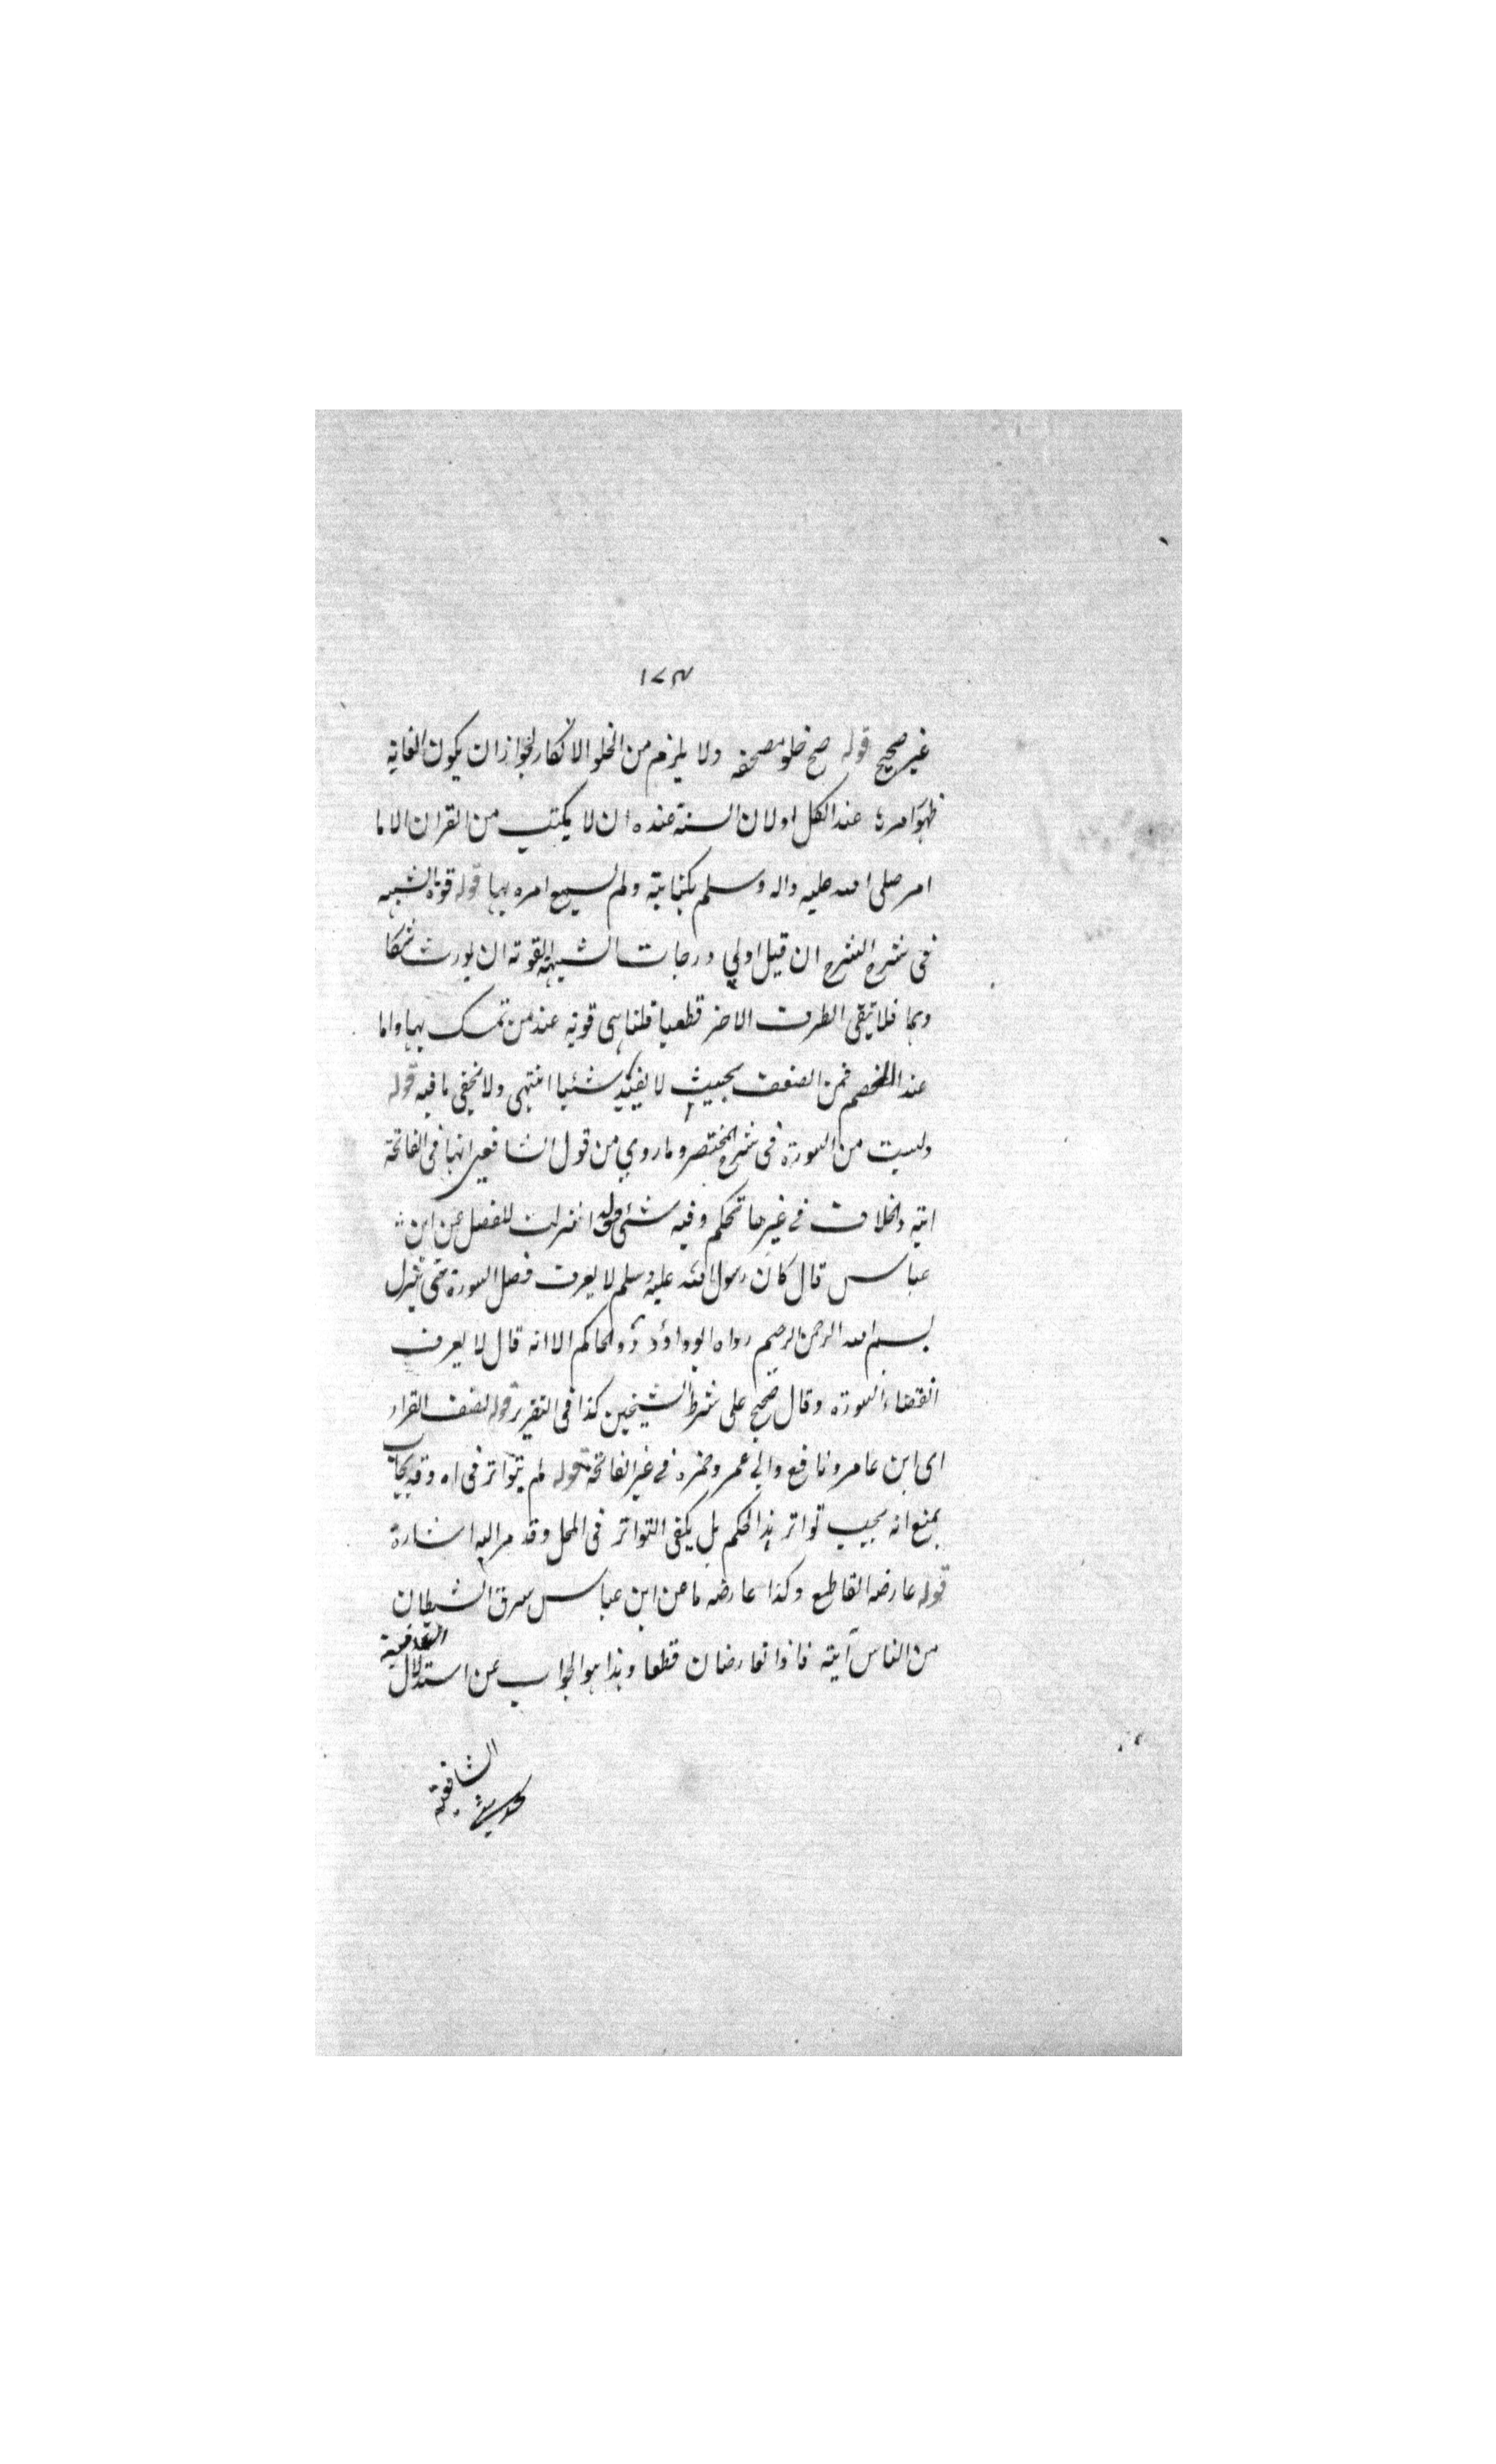 ١٧٣
غير صحيح قوله صح خلو مصحفه ولا يلزم من الخلو الانكار لجواز ان يكون لغاية
ظهور امره عند الكل او لان السنة عنده ان لا يكتب من القران الا ما
امر صلى الله عليه واله وسلم بكتابته ولم يسمع امره بها قوله قوة الشبهة
فى شرح الشرح ان قيل اولى درجات الشبهة القوية ان يورث شكا
وهما فلا تبقى الطرف الاخر قطعيا قلنا هى قوية عند من تمسك بها واما
عند الخصم فمن الضعف بحيث لا يفيد شيئا انتهى ولا يخفى ما فيه قوله
وليست من السورة فى شرح المختصر وما روي من قول الشافعى انها فى الفاتحة
اية والخلاف فى غيرها تحكم وفيه شئ قوله انزلت للفصل عن ابن
عباس قال كان رسول الله عليه وسلم لا يعرف فصل السورة حتى ينزل
بسم الله الرحمن الرحيم رواه ابوداؤد والحاكم الا انه قال لا يعرف
انقضاء السورة وقال صحيح على شرط الشيخين كذا فى التقرير قوله نصف القراء
اى ابن عامر ونافع وابى عمر وحمزة فى غير الفاتحة قوله لم يتواتر فى اه وقد يجاب
بمنع انه يجب تواتر هذا الحكم بل يكفى التواتر فى المحل وقد مر اليه اشارة
قوله عارضه القاطع وكذا عارضه ما عن ابن عباس سرق الشيطان
من الناس آية فاذا تعارضان قطعا وهذا هو الجواب عن استدلال
الشافعية